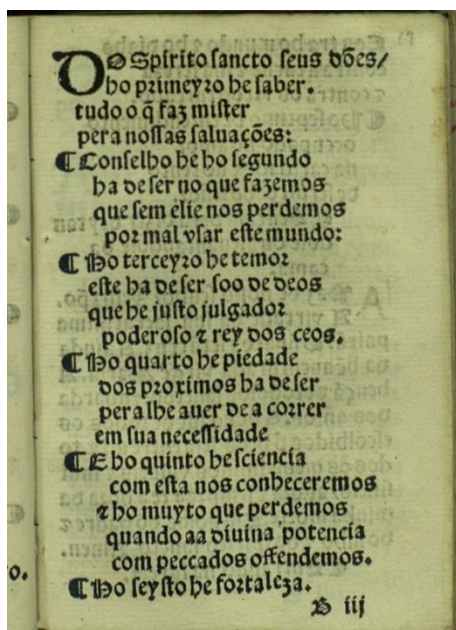 DO Spirito sancto seus dões/
ho primeyro he saber.
tudo o q̃ faz mister
pera nossas saluações:
¶ Conselho he ho segundo
ha de ser no que fazemos
que sem elle nos perdemos
por mal vsar este mundo:
¶ Ho terceyro he temor
este ha de ser soo de deos
que he justo julgador
poderoso ⁊ rey dos ceos.
¶ Ho quarto he piedade
dos proximos ha de ser
pera lhe auer de a correr
em sua necessidade
¶ E ho quinto he sciencia
com esta nos conheceremos
⁊ ho muyto que perdemos
quando aa diuina potencia
com peccados offendemos.
¶ Ho seysto he fortaleza.
B iij